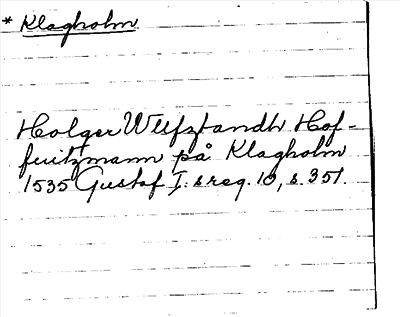 * Klagholm
Holger Ulfztandh Hof-
fuitzmann på Klagholm
1535 Gustaf I:s reg. 10, s. 351.